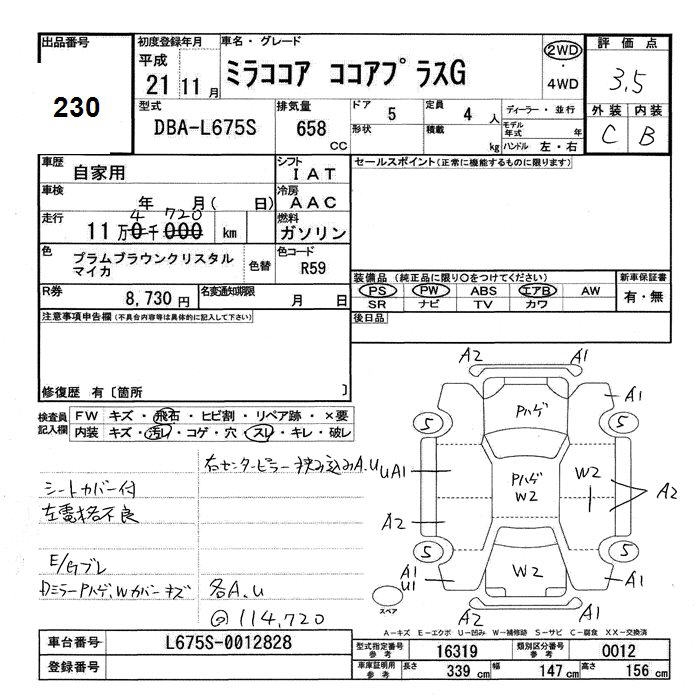 出品番号
230
初度登録年月
平成
21 11月
車名・グレード
ミラココア ココアプラスG
2WD
・
4WD
評価点
3.5
外装 内装
C B
型式
DBA-L675S
排気量
658
CC
ドア 5
形状
定員 4 人
積載 kg
ディーラー・並行
モデル年式 年
ハンドル 左・右
車歴
自家用
シフト
IAT
セールスポイント(正常に機能するものに限ります)
車検
年 月( 日)
冷房
AAC
走行
4 720
11万0千000 km
燃料
ガソリン
色
プラムブラウンクリスタル
マイカ
色替
色コード
R59
装備品(純正品に限り○をつけてください)
PS PW ABS エアB AW
SR ナビ TV カワ
新車保証書
有・無
R券
8,730円
名変通知期限
月 日
後日品
注意事項申告欄(不具合内容等は具体的に記入して下さい)
修復歴 有〔箇所 〕
検査員
記入欄
FW キズ・飛石・ヒビ割・リペア跡・×要
内装 キズ・汚レ・コゲ・穴・スレ・キレ・破レ
右センターピラー挟み込みA.U
シートカバー付
左電格不良
E/Gブレ
Dミラーハゲ、Wカバーキズ
各A.U
◎114,720
A2 A1
A1
Pハゲ
5 5
UA1
Pハゲ
W2
W2
A2
A2
5 5
A1
U1
W2
A1
スペア
A2 A1
A-キズ E-エクボ U-凹み W-補修跡 S-サビ C-腐食 XX-交換済
車台番号
L675S-0012828
登録番号
型式指定番号
参考
16319
類別区分番号
参考
0012
車庫証明用
参考
長さ 339 cm
幅 147 cm
高さ 156 cm